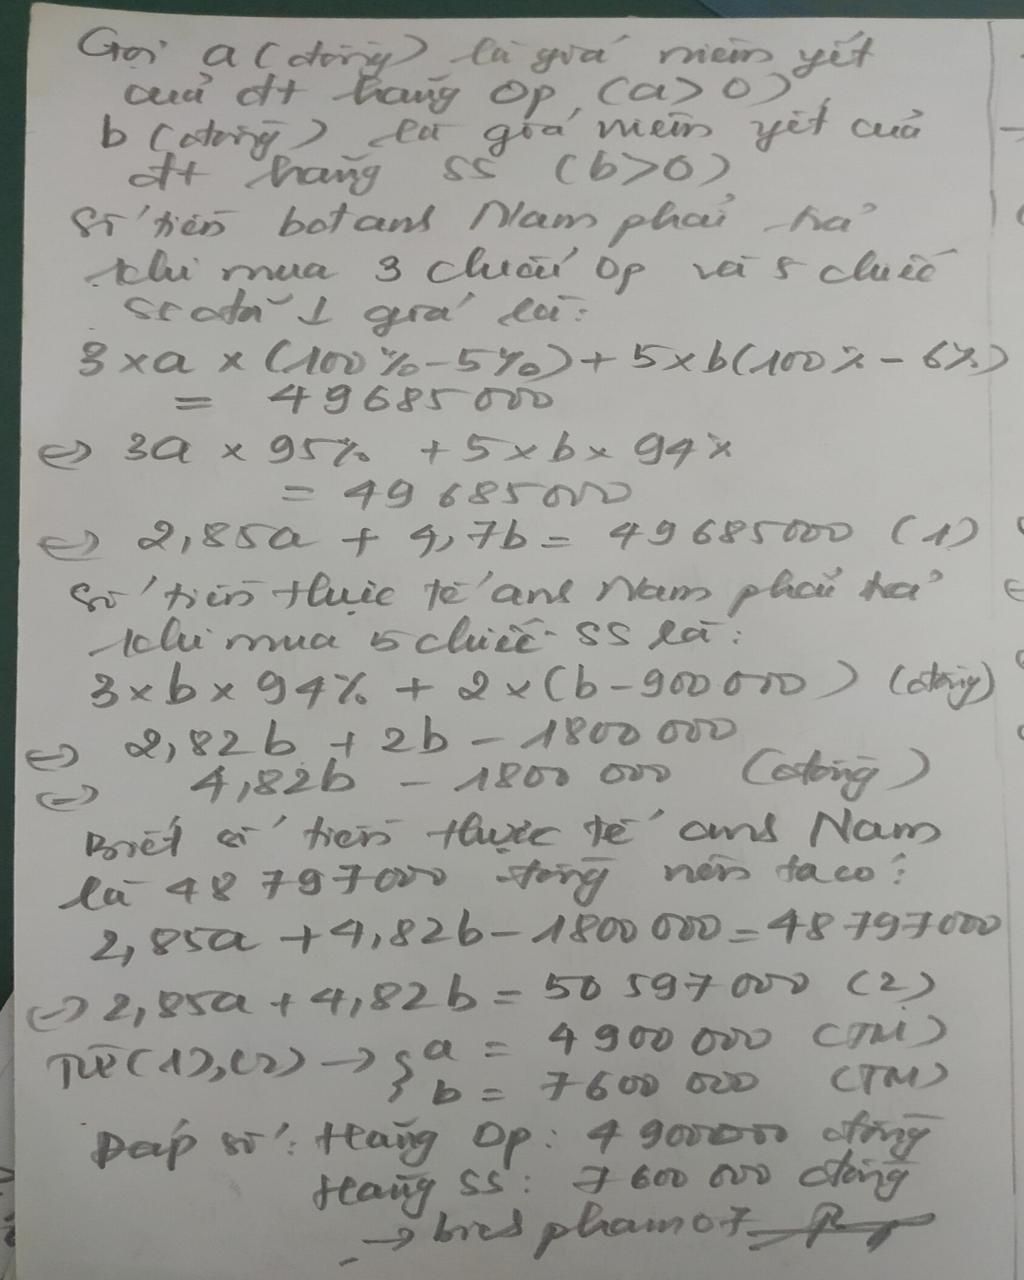 Gọi a (đồng) là giá niêm yết
của đt hãng Op, (a > 0)
b (đồng) là giá niêm yết của
đt hãng SS (b>0)
Số tiền bđ anh Nam phải trả
khi mua 3 chiếc Op và 5 chiếc
SS đã ↓ giá là:
3 x a x (100% - 5%) + 5 x b (100% - 6%)
= 49685000
⇔ 3a x 95% + 5 x b x 94%
= 49 685000
⇔ 2,85a + 4,7b = 49685000 (1)
Số tiền thực tế anh Nam phải trả
khi mua 5 chiếc SS là:
3 x b x 94% + 2 x (b - 900 000) (đồng)
⇔ 2,82b + 2b - 1800 000
⇔ 4,82b - 1800 000 (đồng)
Biết số tiền thực tế anh Nam
là 48 797000 đồng nên ta có:
2,85a + 4,82b - 1800 000 = 48 797000
⇔ 2,85a + 4,82b = 50 597000 (2)
Từ (1), (2) → { a = 4 900 000 (TM)
b = 7600 000 (TM)
Đáp số: Hãng Op: 4 900000 đồng
Hãng SS: 7 600 000 đồng
→ bies pham 07